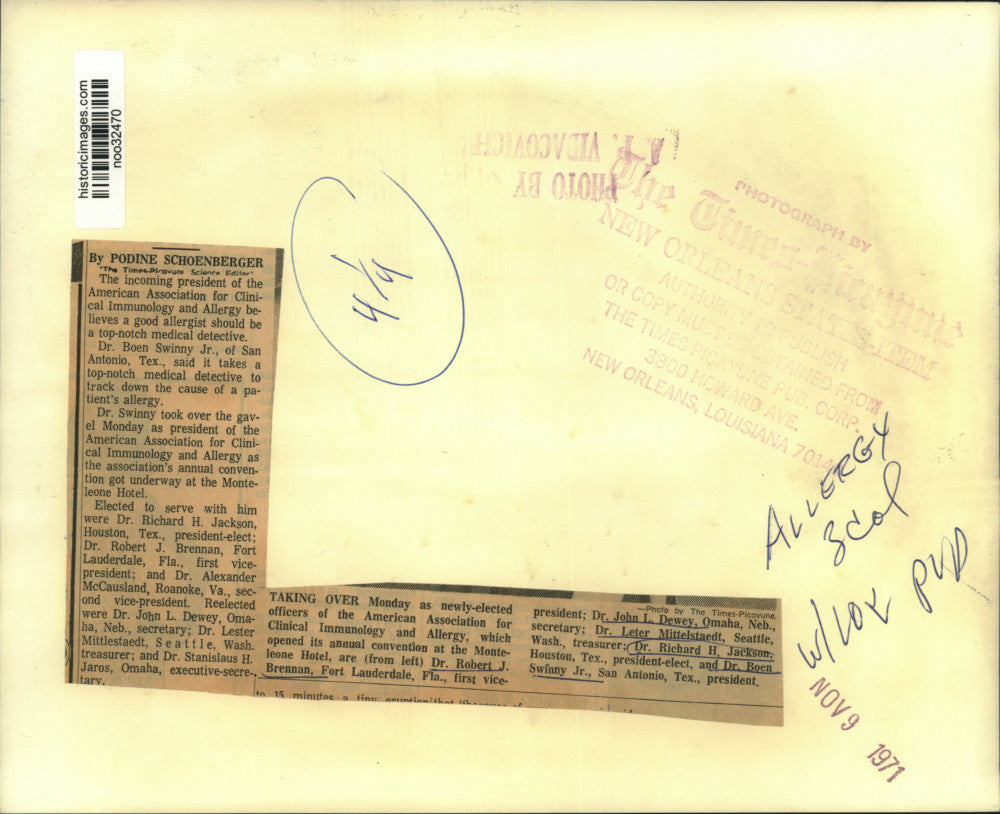 historicimages.com
noo32470
A.F. VIDACOVICH
PHOTO BY
PHOTOGRAPH BY
The Times-Picayune
NEW ORLEANS STATES-ITEM
OR COPY MUST
FROM
THE TIMES-PICAYUNE PUB. CORP.
3800 HOWARD AVE.
NEW ORLEANS, LOUISIANA 70140
4/9
By PODINE SCHOENBERGER
(The Times-Picayune Science Editor)
The incoming president of the
American Association for Clini-
cal Immunology and Allergy be-
lieves a good allergist should be
a top-notch medical detective.
Dr. Boen Swinny Jr., of San
Antonio, Tex., said it takes a
top-notch medical detective to
track down the cause of a pa-
tient's allergy.
Dr. Swinny took over the gav-
el Monday as president of the
American Association for Clini-
cal Immunology and Allergy as
the association's annual conven-
tion got underway at the Monte-
leone Hotel.
Elected to serve with him
were Dr. Richard H. Jackson,
Houston, Tex., president-elect;
Dr. Robert J. Brennan, Fort
Lauderdale, Fla., first vice-
president; and Dr. Alexander
McCausland, Roanoke, Va., sec-
ond vice-president. Reelected
were Dr. John L. Dewey, Oma-
ha, Neb., secretary; Dr. Lester
Mittlestaedt, Seattle, Wash.
treasurer; and Dr. Stanislaus H.
Jaros, Omaha, executive-secre-
tary.
TAKING OVER Monday as newly-elected
officers of the American Association for
Clinical Immunology and Allergy, which
opened its annual convention at the Monte-
leone Hotel, are (from left) Dr. Robert J.
Brennan, Fort Lauderdale, Fla., first vice-
—Photo by The Times-Picayune.
president; Dr. John L. Dewey, Omaha, Neb.,
secretary; Dr. Leter Mittelstaedt, Seattle,
Wash, treasurer; Dr. Richard H. Jackson,
Houston, Tex., president-elect, and Dr. Boen
Swinny Jr., San Antonio, Tex., president.
to 15 minutes a tiny eruption
ALLERGY
3 col
NOV 9 1971